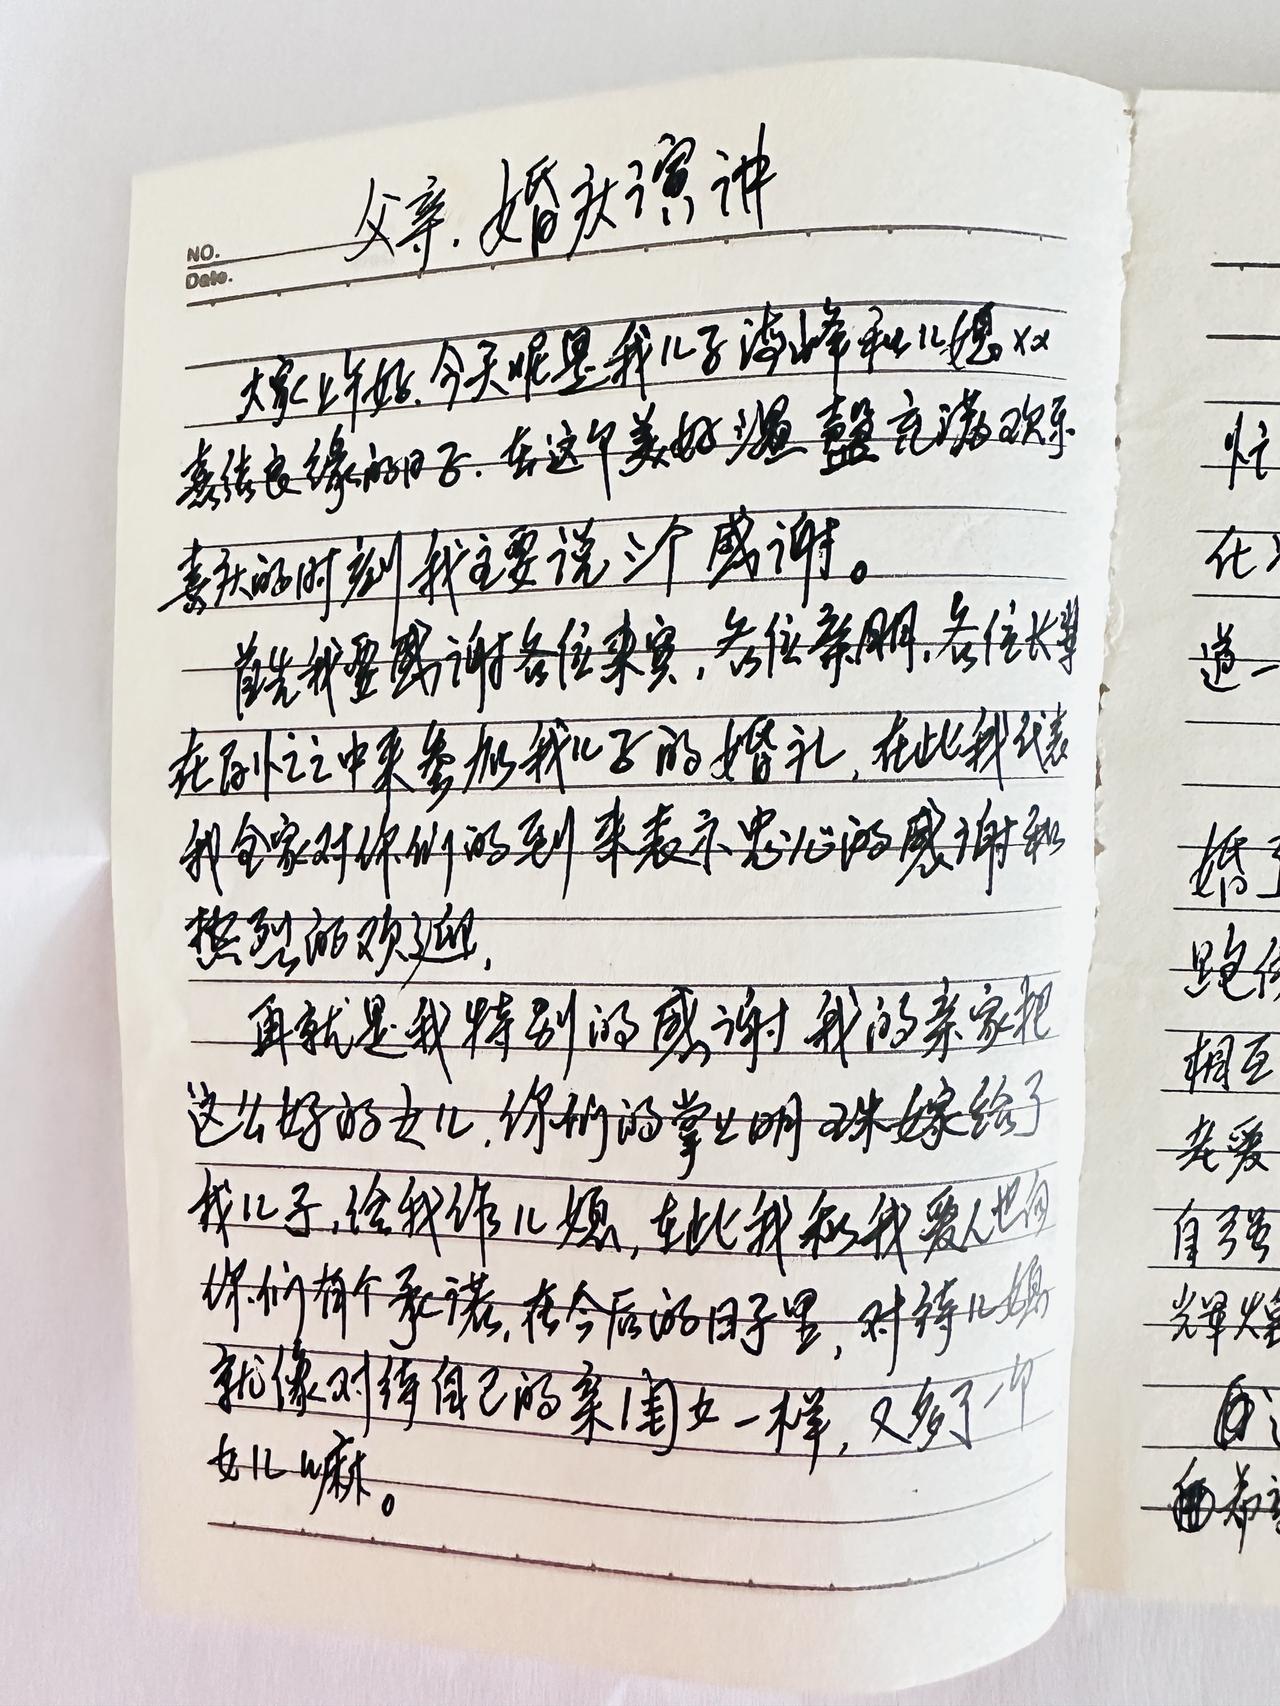 父亲.婚庆演讲
NO.
Date.
大家上午好.今天呢是我儿子涛峰和儿媳xx
喜结良缘的日子.在这个美好温馨充满欢乐
喜庆的时刻我主要说三个感谢。
首先我要感谢各位来宾,各位亲朋,各位长辈
在百忙之中来参加我儿子的婚礼,在此我代表
我全家对你们的到来表示忠心的感谢和
热烈的欢迎,
再就是我特别的感谢我的亲家把
这么好的女儿,你们的掌上明珠嫁给了
我儿子,给我作儿媳,在此我和我爱人也向
你们有个承诺,在今后的日子里,对待儿媳
就像对待自己的亲闺女一样,又多了一个
女儿嘛。
忙
在
道一
婚
跑
相互
老爱
自强
辉煌